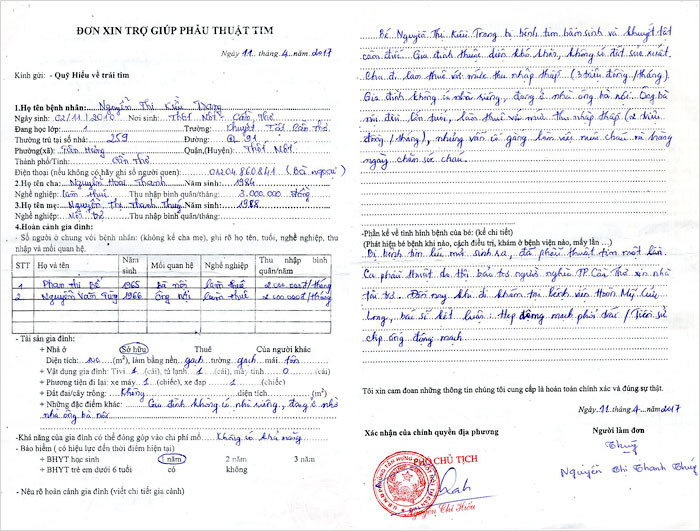 ĐƠN XIN TRỢ GIÚP PHẪU THUẬT TIM
Ngày 11. tháng.4..năm.2017
Kính gửi: - Quỹ Hiểu về trái tim
1.Họ tên bệnh nhân: Nguyễn Thị Kiều Trang
Ngày sinh: 02/11/2010 Nơi sinh: Thốt Nốt Cần Thơ
Đang học lớp: 1 Trường: Khuyết Tật Cần Thơ
Thường trú tại số nhà: 259 Đường: QL 91
Phường(xã): Tân Hưng Quận,(Huyện): Thốt Nốt
Thành phố/Tỉnh: Cần Thơ
Điện thoại (nếu không có hãy ghi số người quen): 01204860841 (Bà ngoại)
2.Họ tên cha: Nguyễn Hoài Thanh Năm sinh: 1984
Nghề nghiệp: làm thuê Thu nhập bình quân/tháng: 3.000.000 đồng
3.Họ tên mẹ: Nguyễn Thị Thanh Thuý Năm sinh: 1988
Nghề nghiệp: Thu nhập bình quân/tháng:
4.Hoàn cảnh gia đình:
- Số người ở chung với bệnh nhân: (không kể cha mẹ), ghi rõ họ tên, tuổi, nghề nghiệp, thu nhập và mối quan hệ.
STT Họ và tên Năm sinh Mối quan hệ Nghề nghiệp Thu nhập bình quân/năm
1 Phan Thị Bé 1965 Bà nội làm thuê 2.000.000đ/tháng
2 Nguyễn Văn 1966 ông nội làm thuê 2.000.000đ/tháng
- Tài sản gia đình:
+ Nhà ở Sở hữu Thuê Của người khác
Diện tích: (m²), làm bằng nền gạch tường gạch mái tôn
+ Vật dụng gia đình: Tivi 1 (cái), tủ lạnh 1 (cái), mã, tính 0 (cái)
+ Phương tiện đi lại: xe máy 1 (chiếc), xe đạp 1 (chiếc)
+ Đất đai/cây trồng: Không diện tích (m²)
+ Những đặc điểm khác: Gia đình không có nhà riêng, đang ở nhờ
nhà ông bà nội
-Khả năng của gia đình có thể đóng góp vào chi phí mổ Không có khả năng
- Bảo hiểm (có hiệu lực đến thời điểm hiện tại)
+ BHYT học sinh 1 năm 2 năm 3 năm
+ BHYT trẻ em dưới 6 tuổi có không
- Nêu rõ hoàn cảnh gia đình (viết chi tiết gia cảnh)
Bé Nguyễn Thị Kiều Trang bị bệnh tim bẩm sinh và khuyết tật
câm điếc. Gia đình thuộc diện khó khăn, không có đất sản xuất.
Cha đi làm thuê với mức thu nhập thấp (3 triệu đồng/tháng).
Gia đình không có nhà riêng, đang ở nhà ông bà nội. Ông bà
nội đều lớn tuổi, làm thuê với mức thu nhập thấp (2 triệu
đồng/tháng), nhưng vẫn cố gắng làm việc nuôi cháu và hàng
ngày chăm sóc cháu.
-Phần kể về tình hình bệnh của bé: (kể chi tiết)
(Phát hiện bé bệnh khi nào, cách điều trị, khám ở bệnh viện nào, mấy lần ...)
Bị bệnh tim lúc mới sinh ra, đã phẫu thuật tim một lần.
Ca phẫu thuật do Hội bảo trợ người nghèo TP. Cần Thơ xin nhà
tài trợ. Đến nay khi đi khám tại bệnh viện Hoàn Mỹ Cửu
Long, bác sĩ kết luận: Hẹp động mạch phổi / Tiền sử
ống động mạch
Tôi xin cam đoan những thông tin chúng tôi cung cấp là hoàn toàn chính xác và đúng sự thật.
Ngày.11.tháng.4...năm2017
Xác nhận của chính quyền địa phương Người làm đơn
PHÓ CHỦ TỊCH Thuý
Nguyễn Chí Hiếu Nguyễn Thị Thanh Thuý